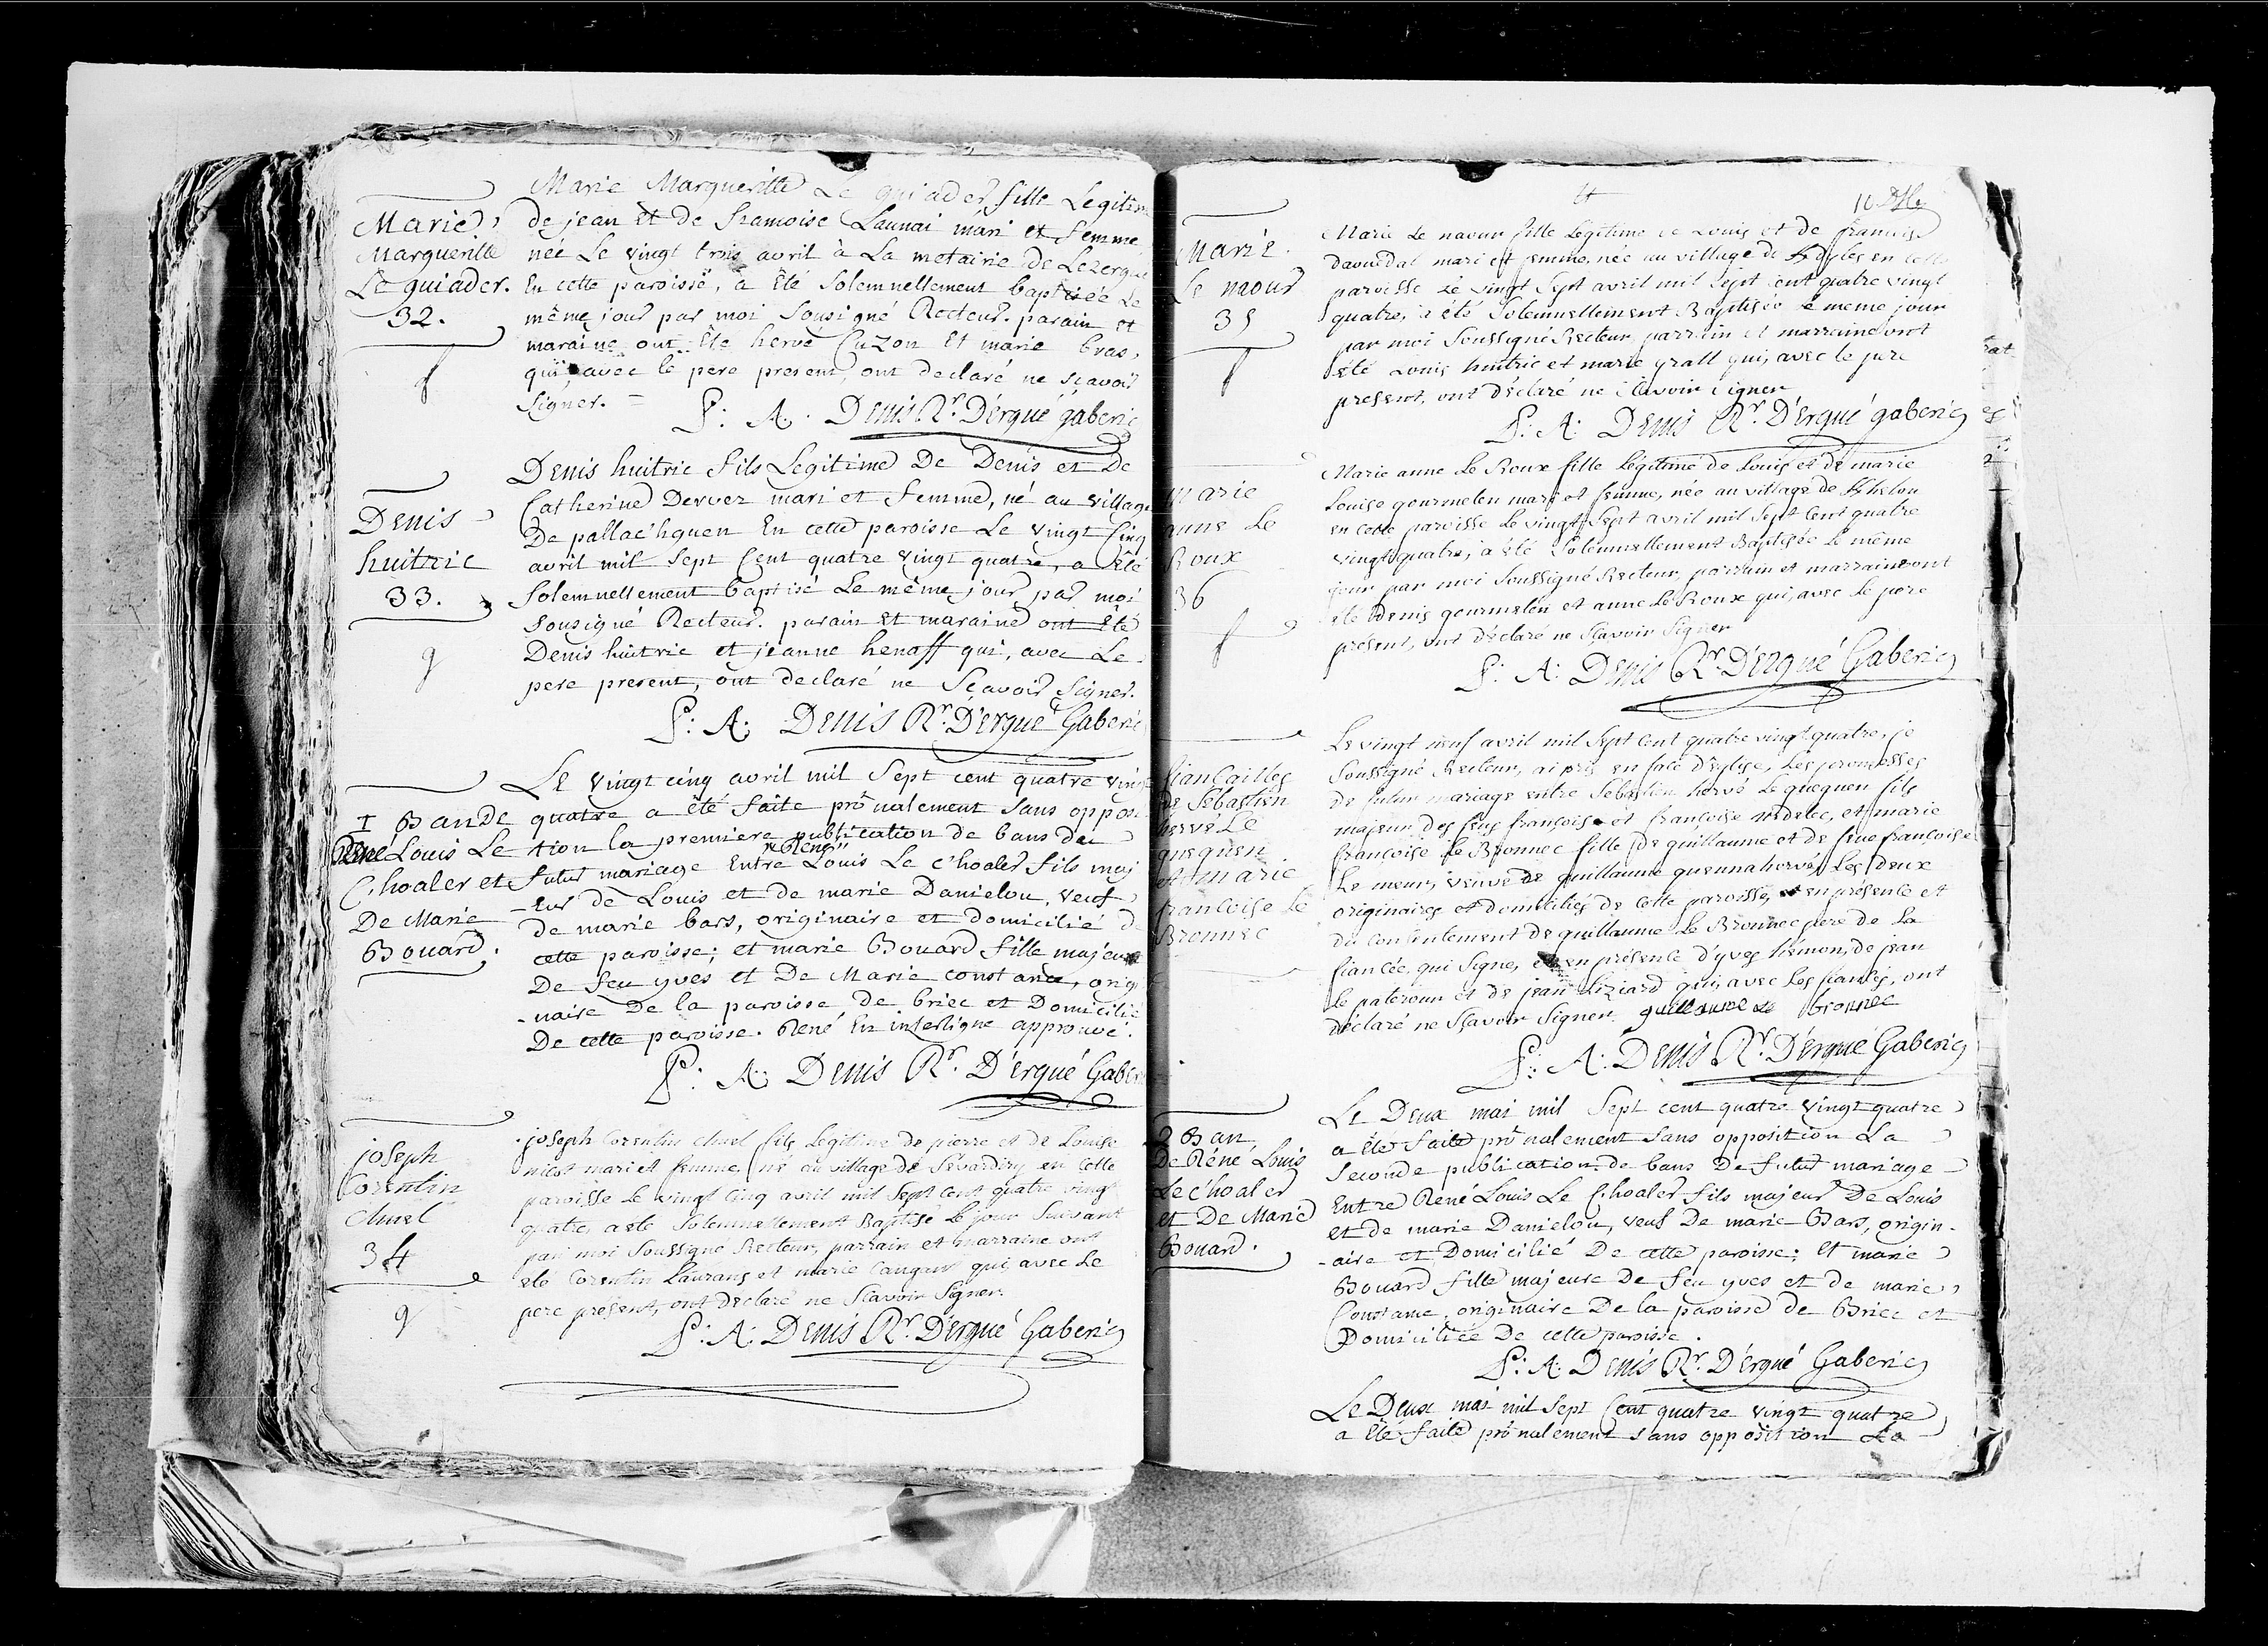 Marie
Marguerite
Le guiader.
32.
f
Marie Margueritte Le guiader, fille Legitime
de jean et de francoise Launai mari et femme
née Le vingt trois avril à La metairie de Lezergué
En cette paroisse, a été Solemnellement baptisée Le
même jour par moi Sousigné Recteur. parain et
maraine ont Ete hervé Cuzon Et marie bras,
qui avec le pere present, ont declaré ne sçavoir
signer. =
F: A. Denis Rr. D'ergué gaberic
Denis
huitric
33.
g
Denis huitric fils Legitime De Denis et De
Catherine Dervez mari et femme, né au village
De pallac'hquen En cette paroisse Le vingt Cinq
avril mil Sept Cent quatre vingt quatre, a Eté
Solemnellement baptisé Le même jour par moi
sousigné Recteur. parain et maraine ont Eté
Denis huitric et jeanne henaff qui, avec Le
pere present, ont declaré ne Sçavoir Signer.
F: A: Denis Rr. D'ergué Gaberic
I Ban De
René Louis Le
C'hoaler et
De Marie
Bouard.
Le vingt cinq avril mil Sept cent quatre vingt
quatre a été faite prônalement sans opposi
tion la premiere publication de bans du
"René"
futur mariage Entre Louis Le C'hoaler fils maj
-eur de Louis et de marie Danielou, veuf
de marie bars, originaire et domicilié de
cette paroisse; et marie Bouard fille majeure
De feu yves et De Marie constance, origi
-naire De la paroisse de briec et Domiciliée
De cette paroisse. René En interligne approuvé.
F: A: Denis Rr. D'ergué Gaberic
joseph
Corentin
34
g
joseph Corentin fils Legitime de pierre et de Louise
nicot mari et femme, né au village de en Cette
paroisse Le vingt Cinq avril mil Sept Cent quatre vingt
quatre, a été Solemnellement Baptisé Le jour Suivant
par moi Soussigné Recteur, parrain et marraine ont
été Corentin Laurans et marie qui avec Le
pere présent, ont Déclaré ne Scavoir Signer.
F: A: Denis Rr. D'ergué Gaberic
Marie
Le naour
35
f
Marie Le naour fille Legitime de Louis et de francoise
mari et femme, née au village de en cette
paroisse Le vingt Sept avril mil Sept cent quatre vingt
quatre, a été Solemnellement Baptisée Le meme jour
par moi Soussigné Recteur, parrain et marraine ont
été Louis huitric et marie grall qui, avec le pere
present, ont déclaré ne Scavoir Signer
F: A: Denis Rr. D'ergué gaberic
marie
anne Le
Roux
36
f
Marie anne Le Roux fille légitime de Louis et de marie
Louise gourmelen mari et femme, née au village de
en Cette paroisse Le vingt Sept avril mil Sept Cent quatre
vingt quatre, a été Solemnellement Baptisée Le même
jour par moi Soussigné Recteur, parrain et marraine ont
été Denis gourmelen et anne Le Roux qui, avec Le pere
présent, ont déclaré ne Sçavoir Signer
F: A: Denis Rr. D'ergué Gaberic
fiancailles
de Sébastien
hervé Le
queguen
et marie
francoise Le
Bronnec
Le vingt neuf avril mil Sept Cent quatre vingt quatre, je
Soussigné Recteur, ai pris en face d'Eglise, Les promesses
de futur mariage entre Sébastien hervé Le queguen fils
majeur des feus françois et françoise nédelec, et marie
françoise Le Bronnec fille de guillaume et de feue françoise
Le meur, veuve de guillaume guennahervé, Les deux
originaires et domiciliés de cette paroisse, en présence et
du Consentement de guillaume Le Bronnec pere de La
fiancée, qui Signe, en présence d'yves hémon, de jean
Le et de jean Liziard qui, avec Les fiancés, ont
déclaré ne Sçavoir Signer. guillaume Le bronnec
F: A: Denis Rr. D'ergué Gaberic
2 Ban
De Réné Louis
Le C'hoaler
et De Marie
Bouard.
Le Deux mai mil Sept cent quatre vingt quatre
a Eté faite prônalement sans opposition La
seconde publication de bans De futur mariage
Entre René Louis Le C'hoaler fils majeur De Louis
et de marie Danielou, veuf De marie Bars, origin-
-aire et Domicilié De cette paroisse; Et marie
Bouard fille majeure De feu yves et de marie
Constance, originaire De la paroisse de Briec et
Domiciliée De cette paroisse.
F: A: Denis Rr. D'ergué Gaberic
Le Deux mai mil Sept Cent quatre vingt quatre
a Eté faite prônalement sans opposition La